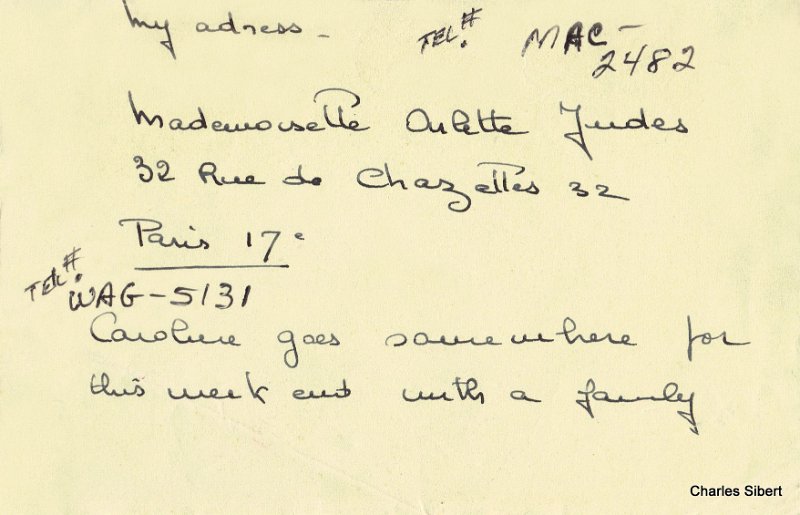 My adress -
TEL.# MAC-
2482
Mademoiselle Arlette Judes
32 Rue de Chazelles 32
Paris 17e
TEL.#
WAG-5131
Caroline goes somewhere for
this week end with a family
Charles Sibert